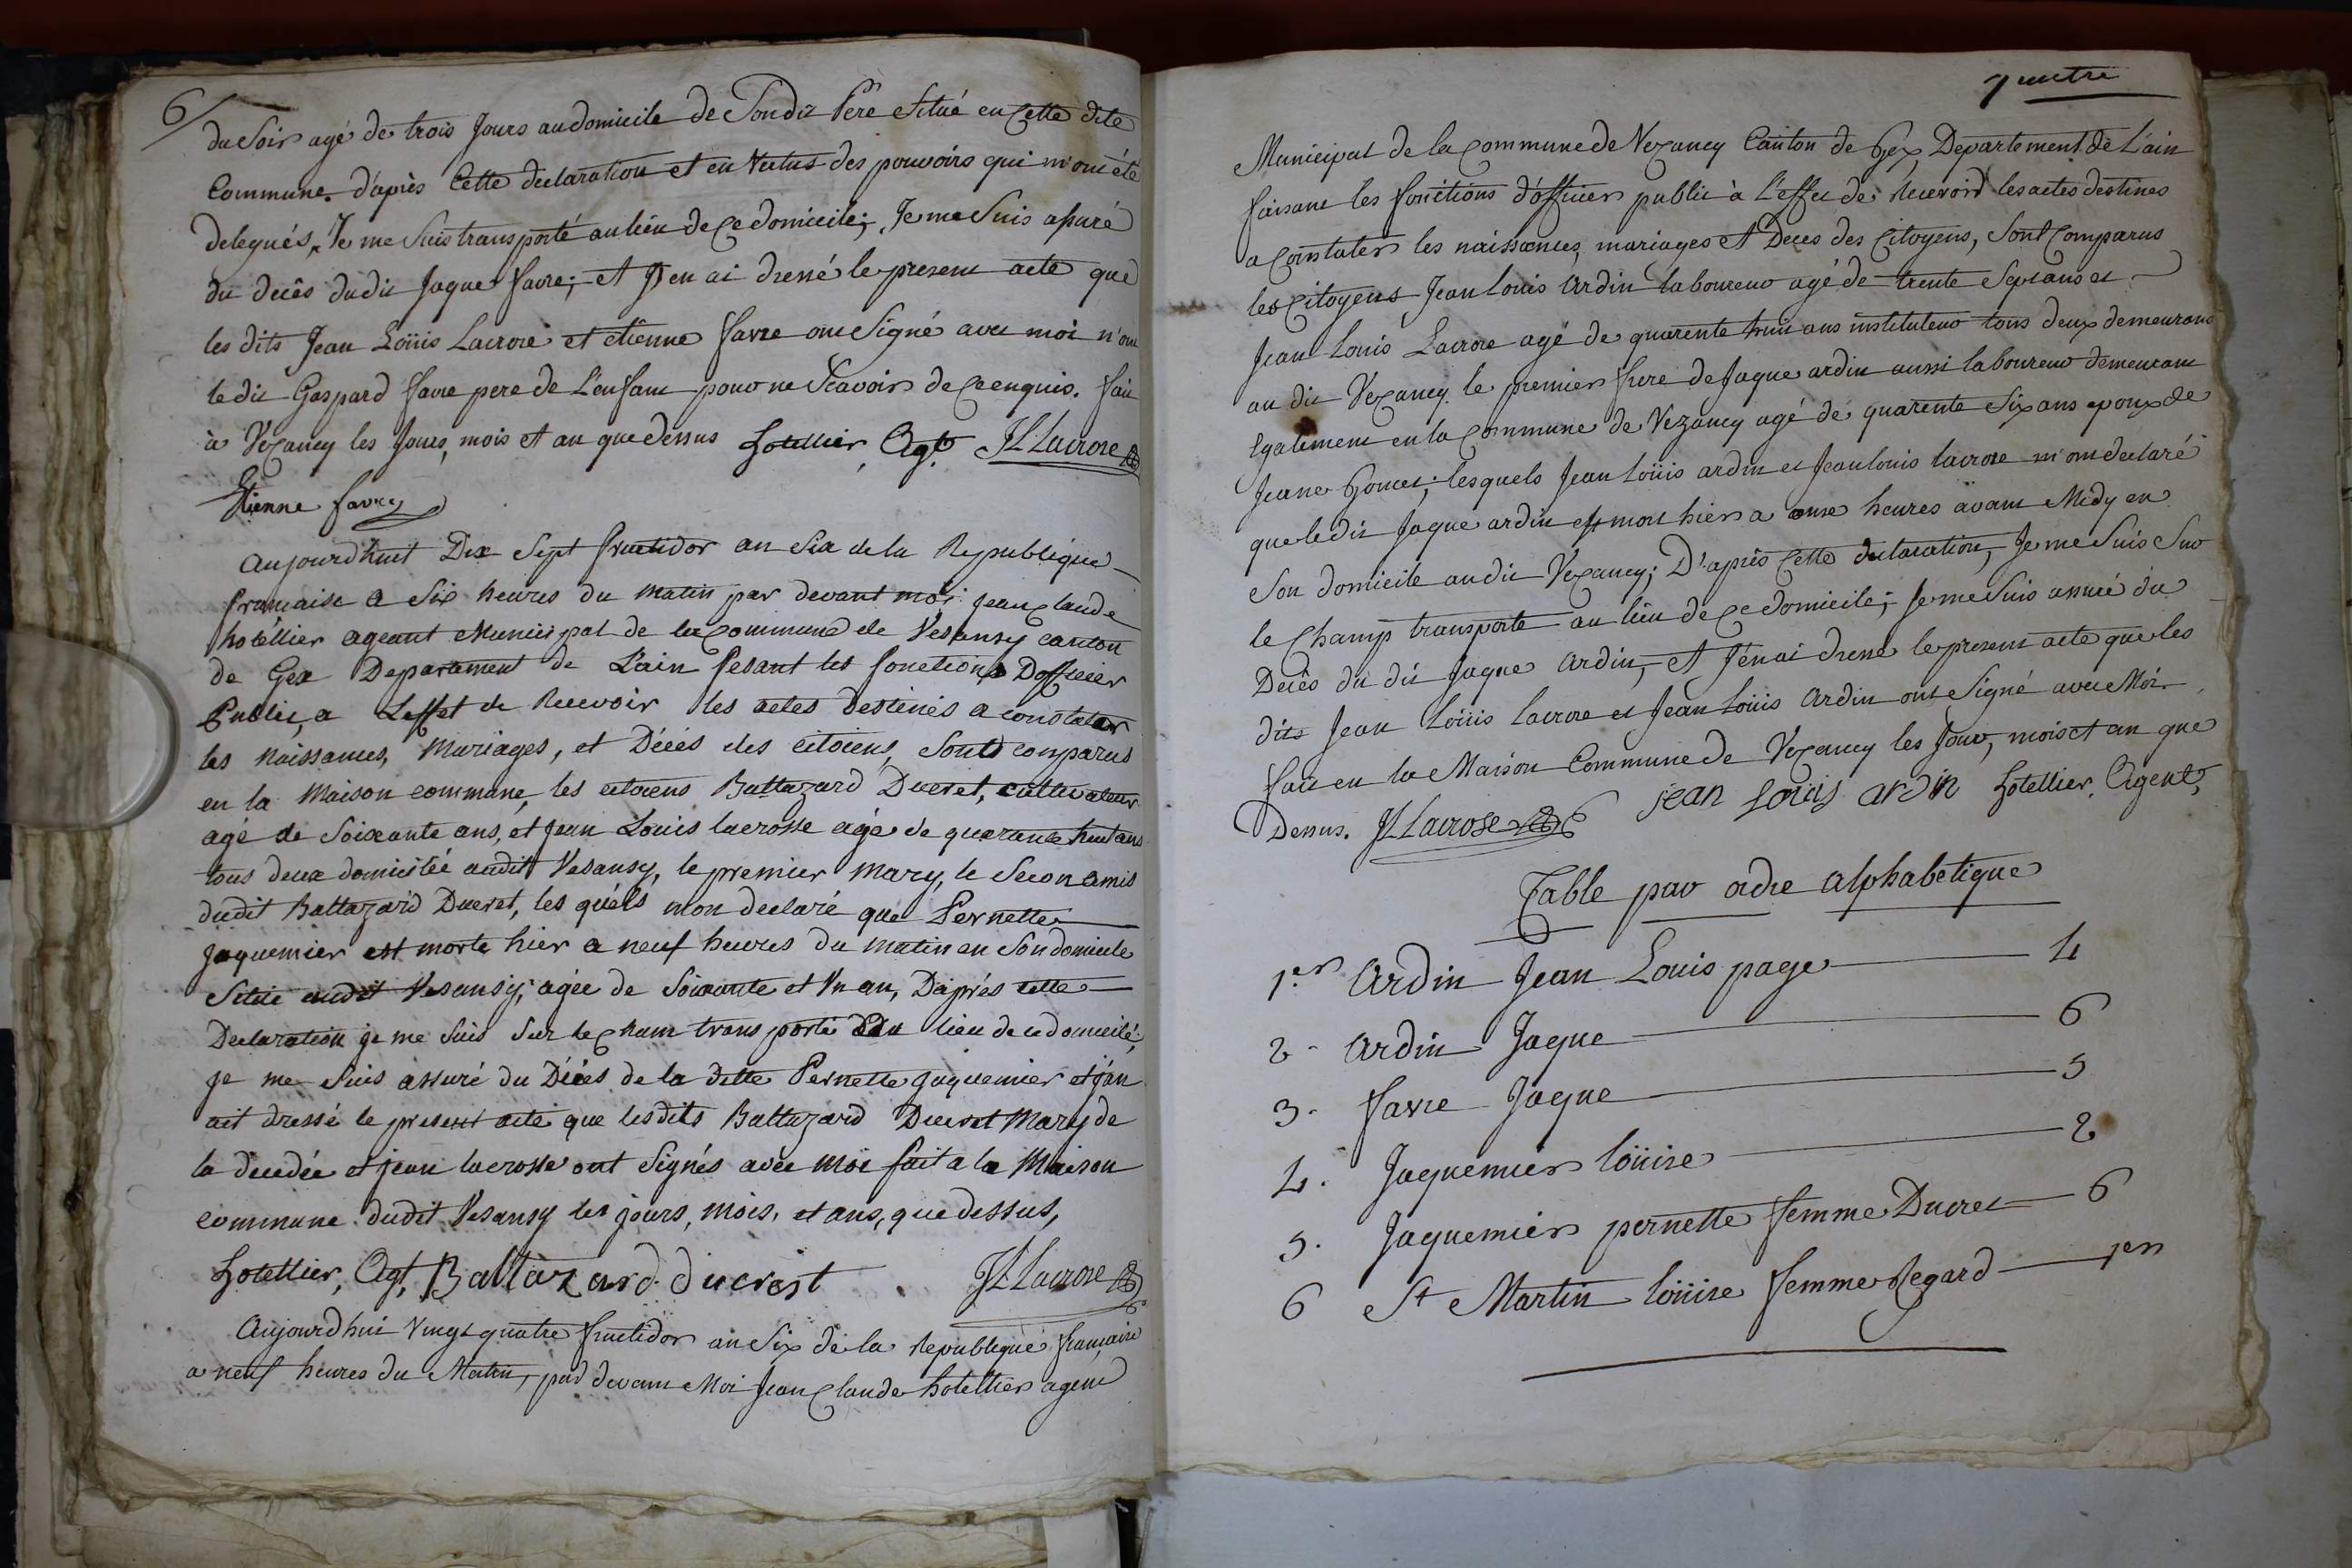 6/
du Soir agé de trois Jours au domicile de Son dit Pere Situé en Cette dite
Commune. d'après Cette declaration et en Vertus des pouvoirs qui m'ont été
delegués, Je me Suis transporté au lieu de Ce domicile; Je me Suis assuré
du decès du dit Jaque favre; et J'en ai dressé le present acte que
les dits Jean Loüis Lacrose et etienne favre ont Signé avec moi n'on
le dit Gaspard favre pere de L'enfant pour ne Scavoir de Ce enquis. fait
à Vezancy les Jours, mois et an que Dessus Hotellier, Agt JLLacrose
Etienne favre
Aujourdhuit Dix Sept fructidor an Six de la Republique
francaise a Six heures du matin par devant moi Jean Claude
hotéllier ageant Municipal de la Commune de Vesansy canton
de Gex Departement de L'ain fesant les fonctions Dofficier
Public, a Leffet de Recevoir les actes destinés a constater
les Naissances, Mariages, et Décés des citoiens, Sont comparus
en la Maison commune, les citoiens Baltazard Ducret, cultivateur
agé de Soixante ans, et Jean Louis lacrosse agé de quarante huit ans
tous deux domicilié audit Vesansy, le premier Mary, le Secon amis
dudit Baltazard Ducret, les quéls mon declaré que Pernette
Jaquemier est morte hier a neuf heures du matin en Son domicile
Situé audit Vesansy; agée de Soixante et Un an, Daprés cette
Declaration je me Suis Sur le Cham trans porté au lieu de ce domicilé,
je me Suis assuré du Décés de la ditte Pernette Jaquemier et j'an
ait dressé le present acte que lesdits Baltazard Ducret Mary de
la decedée et jean lacrosse ont Signés avèc moi fait a la Maison
commune dudit Vesansy les jours, mois, et ans, que dessus,
Hotellier, Agt, Baltazard ducrest JLLacrose
Aujourd'hui Vingt quatre fructidor an Six de la Republique française
a neuf heures du Matin, par devant Moi Jean Claude hotellier agent
7
Municipal de la Commune de Vezancy Canton de Gex Departement de L'ain
faisant les fonctions d'officier public à L'effet de Recevoir les actes destines
a Constater les naissances, mariages et Deces des Citoyens, Sont Comparus
les Citoyens Jean Louis Ardin laboureur agé de trente Sept ans et
Jean Louis Lacrose agé de quarente huit ans instituteur tous deux demeurans
au dit Vezancy le premier frere de Jaque ardin aussi laboureur demeurant
Egalement en la Commune de Vezancy agé de quarente Six ans epoux de
Jeane Gonet; lesquels Jean Loüis ardin et Jean louis lacrose m'ont declaré
que le dit Jaque ardin est mort hier a onse heures avant Midy en
Son domicile au dit Vezancy; D'après Cette declaration, Je me Suis Sur
le Champ transporté au lieu de Ce domicile; Je me Suis assuré du
Decès du dit Jaque Ardin, et J'en ai dressé le present acte que les
dits Jean Loüis lacrose et Jean Loüis Ardin ont Signé avec Moi
fait en la Maison Commune de Vezancy les Jour, mois et an que
Dessus. JLLacrose jean louis ardin Hotellier, Agent,
Table par ordre alphabetique
1.er Ardin Jean Louis page 4
2 - Ardin Jaque 6
3 - favre Jaque 5
4. Jaquemier loüise 2
5. Jaquemier pernette femme Ducret 6
6 St Martin loüise femme Regard 1er